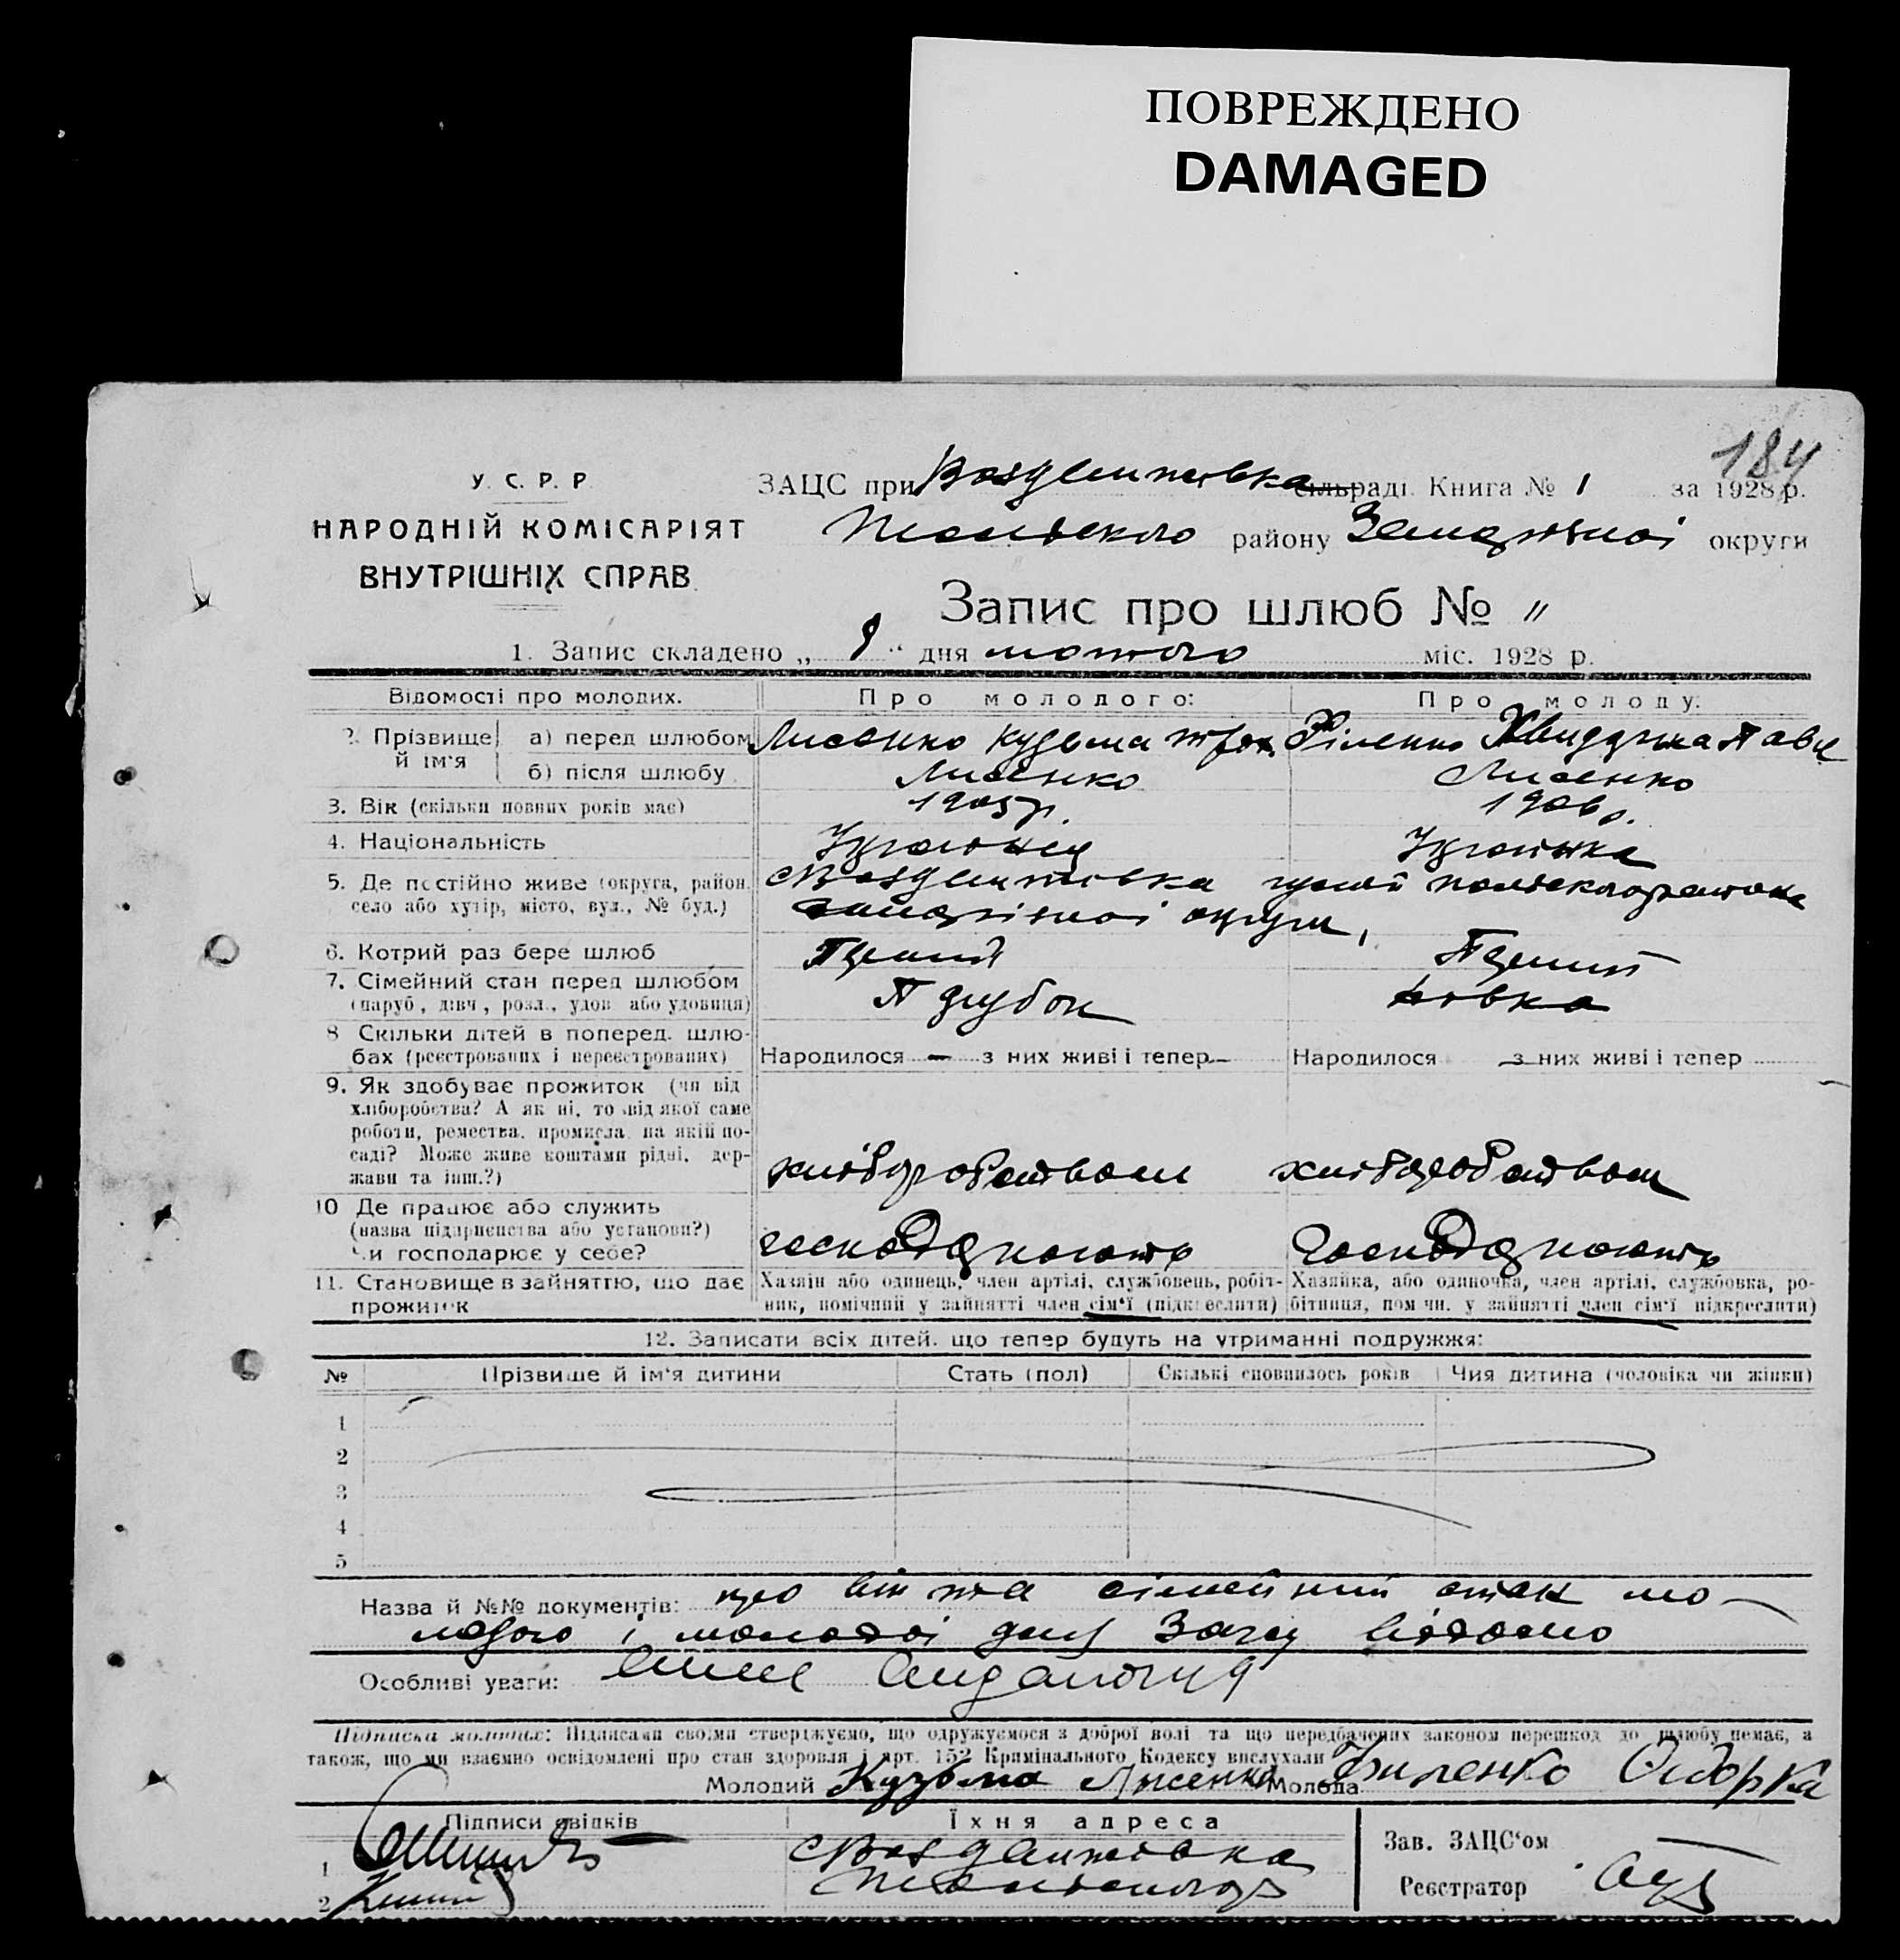 ПОВРЕЖДЕНО
DAMAGED
184
У. С. Р. Р.
НАРОДНІЙ КОМІСАРІЯТ
ВНУТРІШНІХ СПРАВ.
ЗАЦС при Воздвижівка сільраді. Книга № 1 за 1928 р.
району Запоріжної округи
Запис про шлюб № "
1. Запис складено „ 9 “ дня лютого міс. 1928 р.
Відомості про молодих. Про молодого: Про молоду:
2. Прізвище й ім'я
а) перед шлюбом Лисенко Кузьма Троx. Філенко Павл
б) після шлюбу Лисенко Лисенко
3. Вік (скільки повних років має) 1905 р. 1906 р.
4. Національність Українец Українка
5. Де постійно живе (округа, район, село або хутір, місто, вул., № буд.) с Воздвижівка
Запоріжної округи,
6. Котрий раз бере шлюб Перший Перший
7. Сімейний стан перед шлюбом (паруб., дівч., розл., удов. або удовиця) Парубок
8 Скільки дітей в поперед. шлюбах (реєстрованих і нереєстрованих) Народилося — з них живі і тепер — Народилося з них живі і тепер
9. Як здобуває прожиток (чи від
хліборобства? А як ні, то від якої саме
роботи, ремества, промисла, на якій по-
саді? Може живе коштами рідні, дер-
жави та інш.?) хліборобством хліборобством
10 Де працює або служить
(назва підприємства або установи?)
Чи господарює у себе? господарюють господарюють
11. Становище в занятгю, що дає Хазяін або одинець, член артілі, службовець, робіт- Хазяйка, або одиночка, член артілі, службовка, ро-
прожиток ник, помічний у зайнятті член сім'ї (підкреслити) бітниця, пом чн. у зайнятті член сім'ї підкреслити)
12. Записати всіх дітей, що тепер будуть на утриманні подружжя:
№ Прізвище й ім'я дитини Стать (пол) Скількі сповнилось років Чия дитина (чоловіка чи жінки)
1
2
3
4
5
Назва й №№ документів: про вік та сімейний стан мо-
лодого і молодої для Загсу відомо
Особливі уваги:
Підписка молодих: Підписами своїми стверджуємо, що одружуємося з доброї волі та що передбачених законом перешкод до шлюбу немає, а
також, що ми взаємно освідомлені про стан здоровля і арт. 152 Крамінального Кодексу вислухали
Молодий Кузьма Лисенко Молода Филенко Фидорка
Підписи свідків Їхня адреса Зав. ЗАЦС'ом —
1 с Воздвижівка
2 Реєстратор